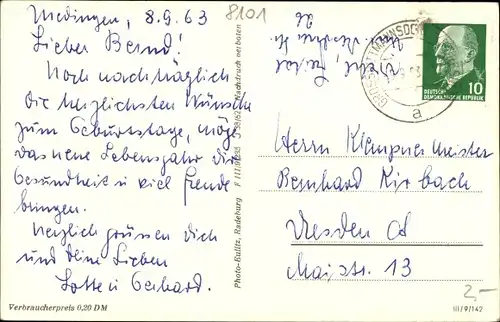 Medingen, 8.9.63
Lieber Bernd!
Noch nachträglich
die herzlichsten Wünsche
zum Geburtstage, möge
das neue Lebensjahr dir
Gesundheit u. viel Freude
bringen.
Herzlich grüssen dich
und deine Lieben
Lotte u. Gerhard.
Verbraucherpreis 0,20 DM
8101
Photo-Eulitz, Radeburg
Nachdruck verboten
a
DEUTSCHE
DEMOKRATISCHE REPUBLIK
10
Herrn Klempnermeister
Bernhard Kirbach
Dresden A
Maistr. 13
2,-
III/9/142